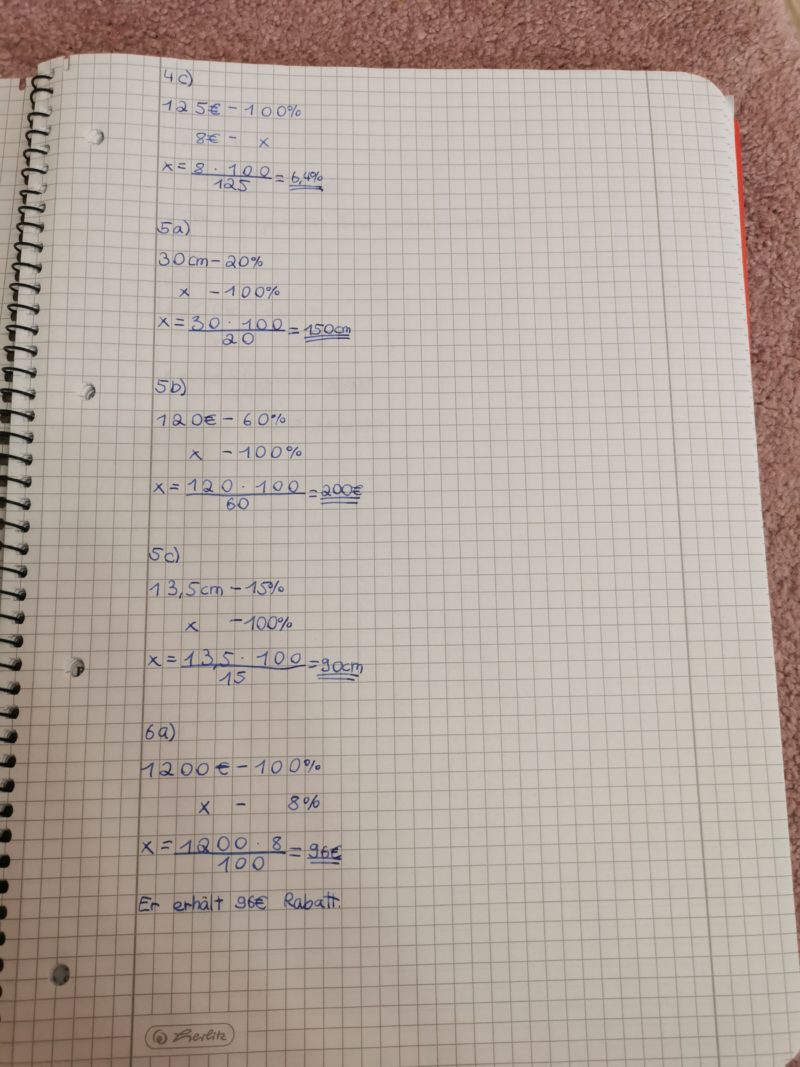 4c)
125€ - 100%
8€ - x
x = 8 · 100 / 125 = 6,4%
5a)
30cm - 20%
x - 100%
x = 30 · 100 / 20 = 150cm
5b)
120€ - 60%
x - 100%
x = 120 · 100 / 60 = 200€
5c)
13,5cm - 15%
x - 100%
x = 13,5 · 100 / 15 = 90cm
6a)
1200€ - 100%
x - 8%
x = 1200 · 8 / 100 = 96€
Er erhält 96€ Rabatt.
herlitz